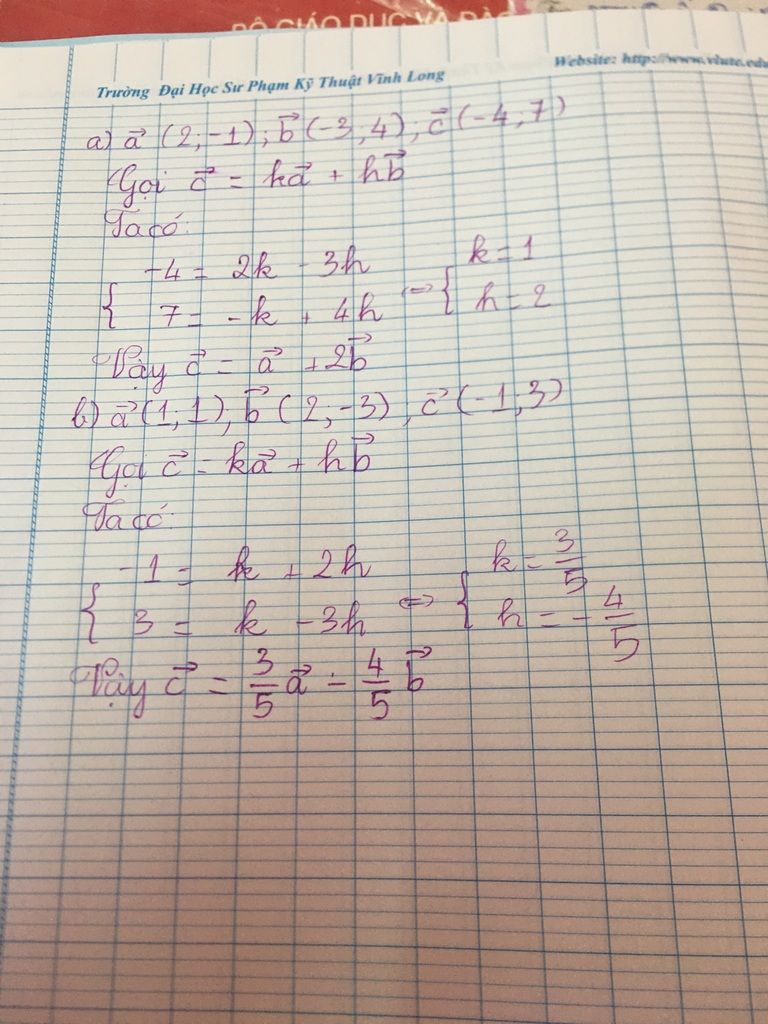 BỘ GIÁO DỤC VÀ
Trường Đại Học Sư Phạm Kỹ Thuật Vĩnh Long
Website: http://www.vlute.edu
a) a⃗ (2;-1); b⃗ (-3,4); c⃗ (-4;7)
Gọi c⃗ = ka⃗ + hb⃗
Ta có:
{ -4 = 2k - 3h ⇔ { k = 1
7 = -k + 4h h = 2
Vậy c⃗ = a⃗ + 2b⃗
b) a⃗ (1;1), b⃗ (2,-3), c⃗ (-1;3)
Gọi c⃗ = ka⃗ + hb⃗
Ta có:
{ -1 = k + 2h ⇔ { k = 3/5
3 = k - 3h h = -4/5
Vậy c⃗ = 3/5 a⃗ - 4/5 b⃗